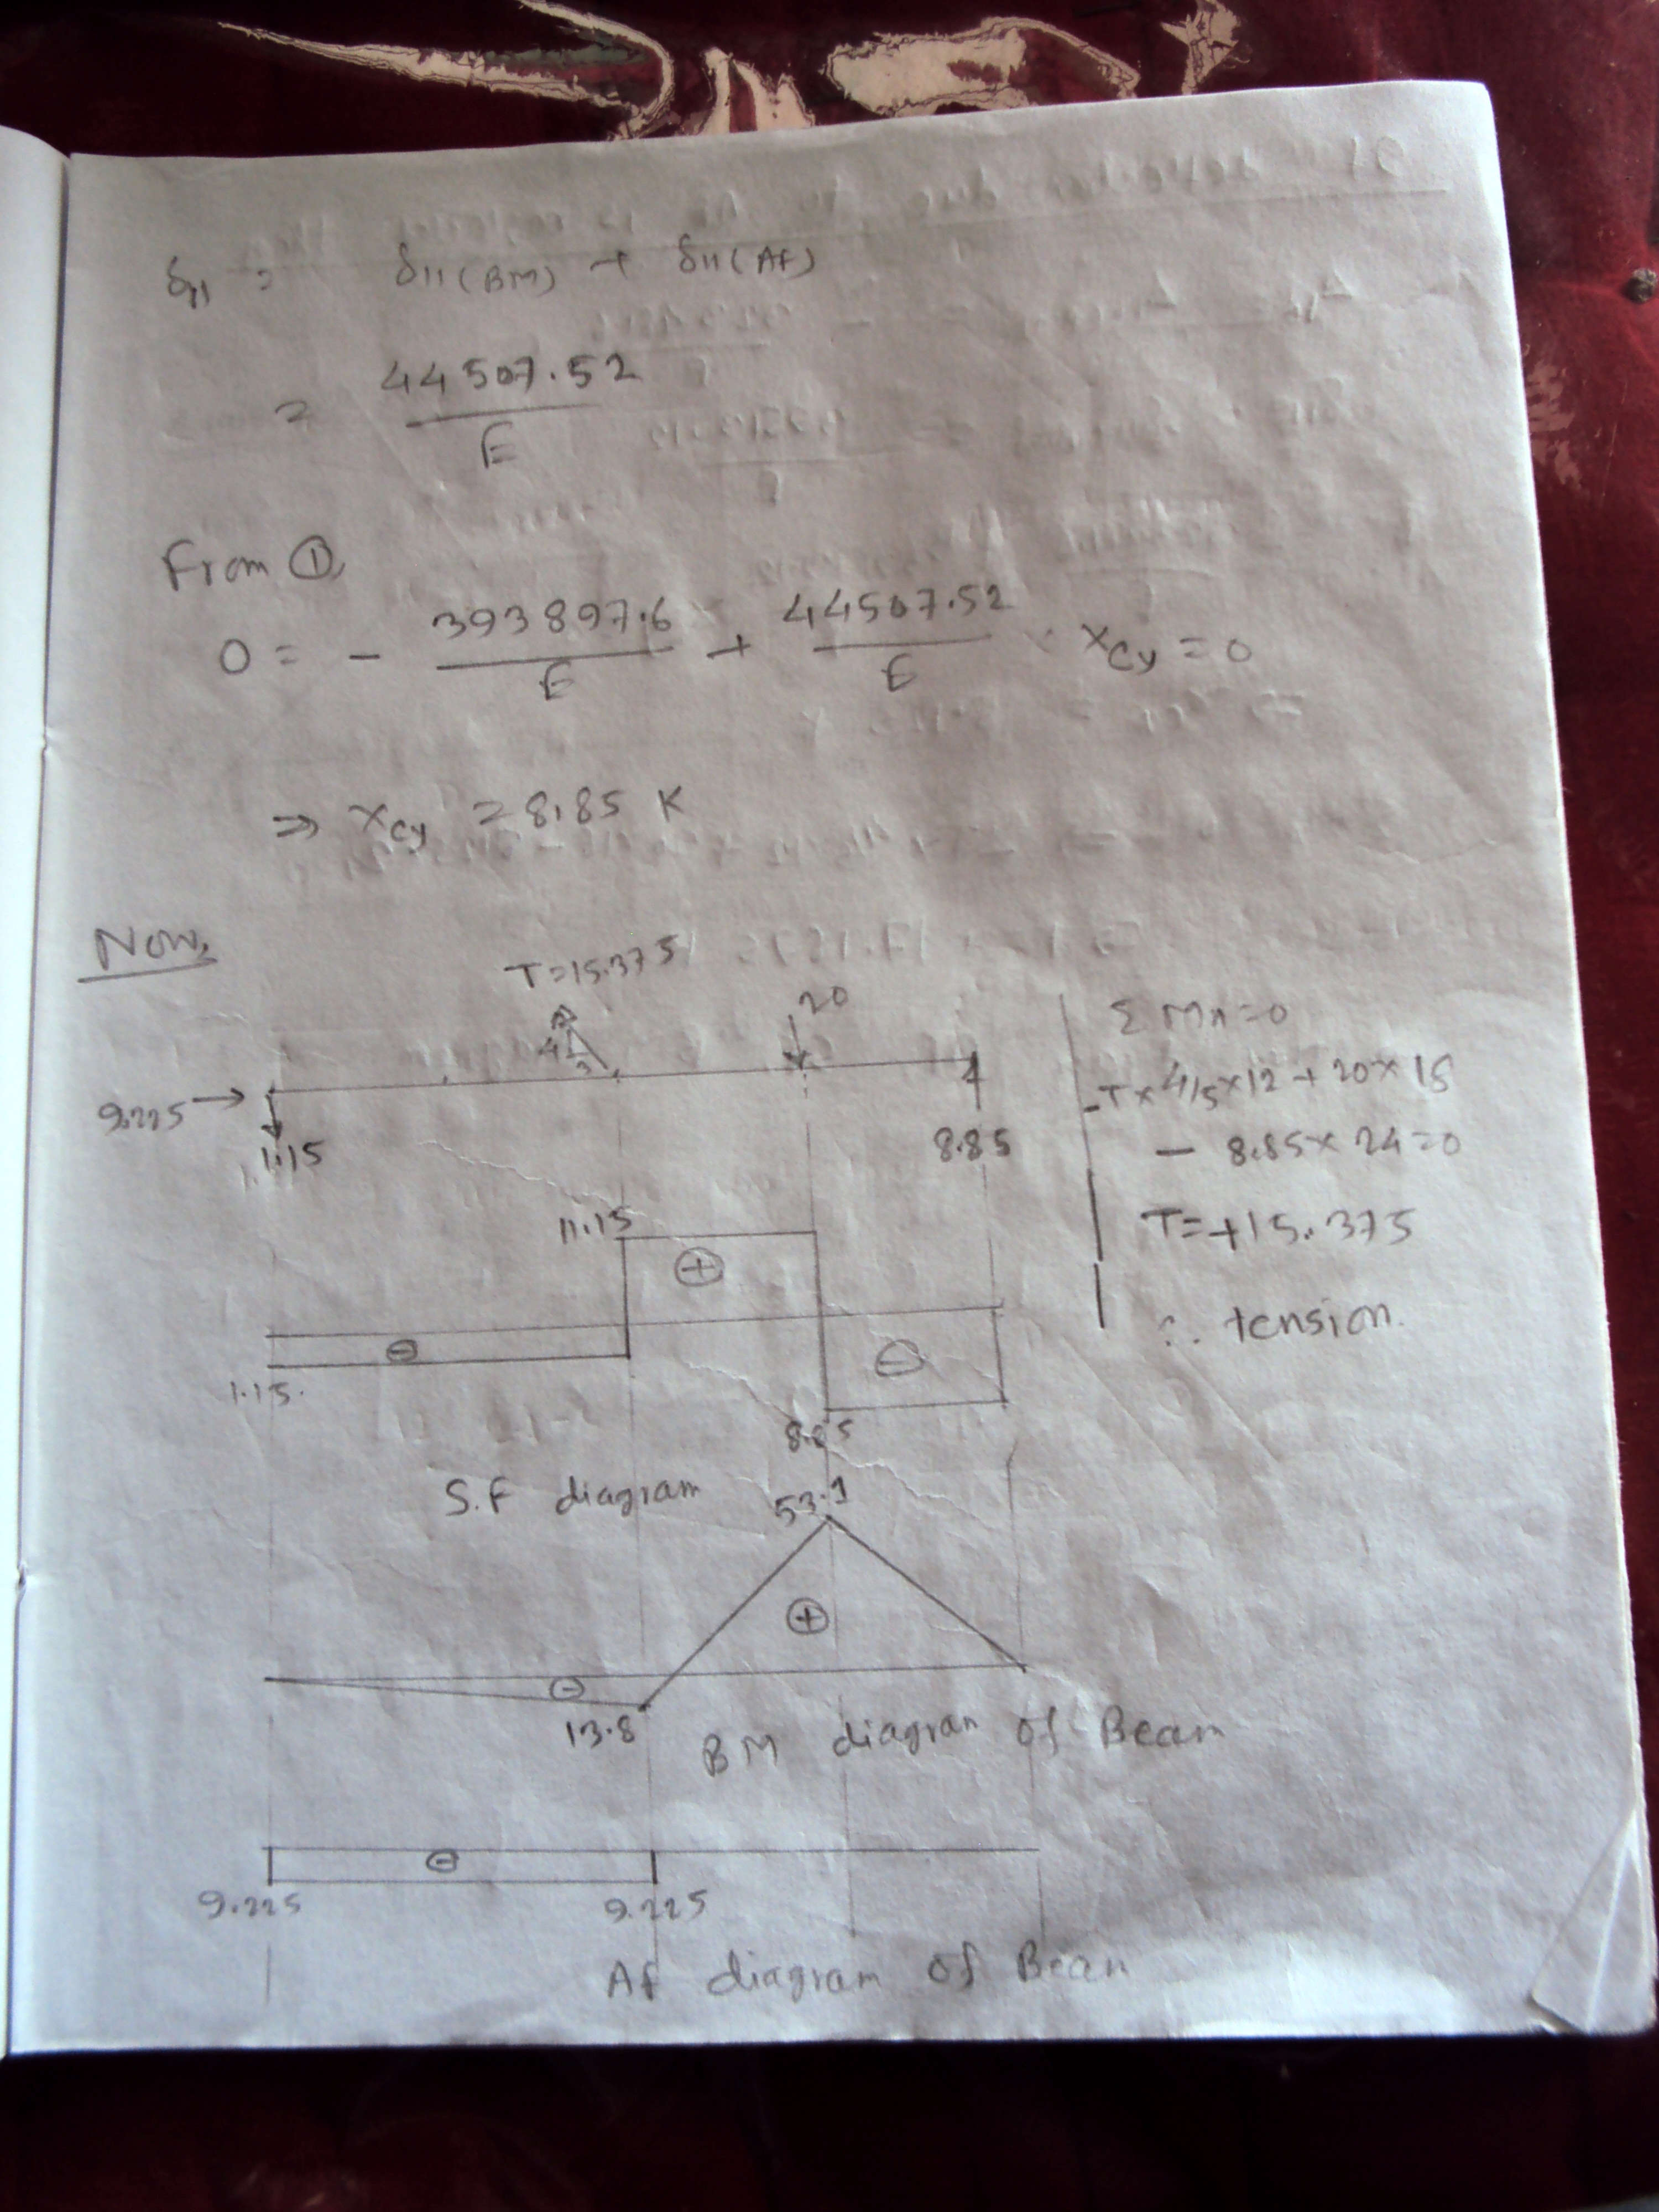 δ11 = δ11(BM) + δ11(AF)
= 44507.52 / E
From ①,
0 = - 393897.6 / E + 44507.52 / E × xcy = 0
⇒ xcy = 8.85 K
Now,
T=15.375
20
4
3
9.225 →
1.15
8.85
Σ MA=0
-T×4/5×12+20×18
- 8.85×24=0
T=+15.375
∴ tension.
11.15
+
-
-
1.15
8.85
S.F diagram
53.1
+
-
13.8
BM diagram of Beam
-
9.225
9.225
AF diagram of Beam